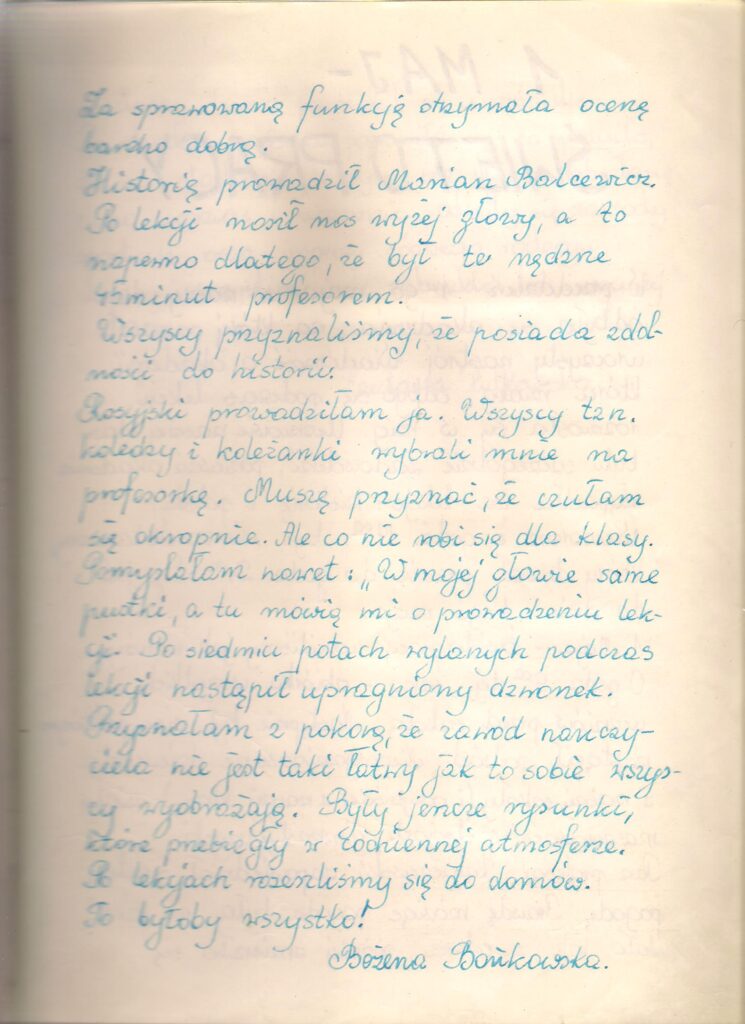 Za sprawowaną funkcję otrzymała ocenę
bardzo dobrą.
Historię prowadził Marian Balcewicz.
Po lekcji nosił nos wyżej głowy, a to
napewno dlatego, że był te nędzne
45 minut profesorem.
Wszyscy przyznaliśmy, że posiada zdol-
ności do historii.
Rosyjski prowadziłam ja. Wszyscy tzn.
koledzy i koleżanki wybrali mnie na
profesorkę. Muszę przyznać, że czułam
się okropnie. Ale co nie robi się dla klasy.
Pomyślałam nawet: „W mojej głowie same
pustki, a tu mówią mi o prowadzeniu lek-
cji. Po siedmiu potach wylanych podczas
lekcji nastąpił upragniony dzwonek.
Przyznałam z pokorą, że zawód nauczy-
ciela nie jest taki łatwy jak to sobie wszys-
cy wyobrażają. Były jeszcze rysunki,
które przebiegły w codziennej atmosferze.
Po lekcjach rozeszliśmy się do domów.
To byłoby wszystko!
Bożena Bońkowska.